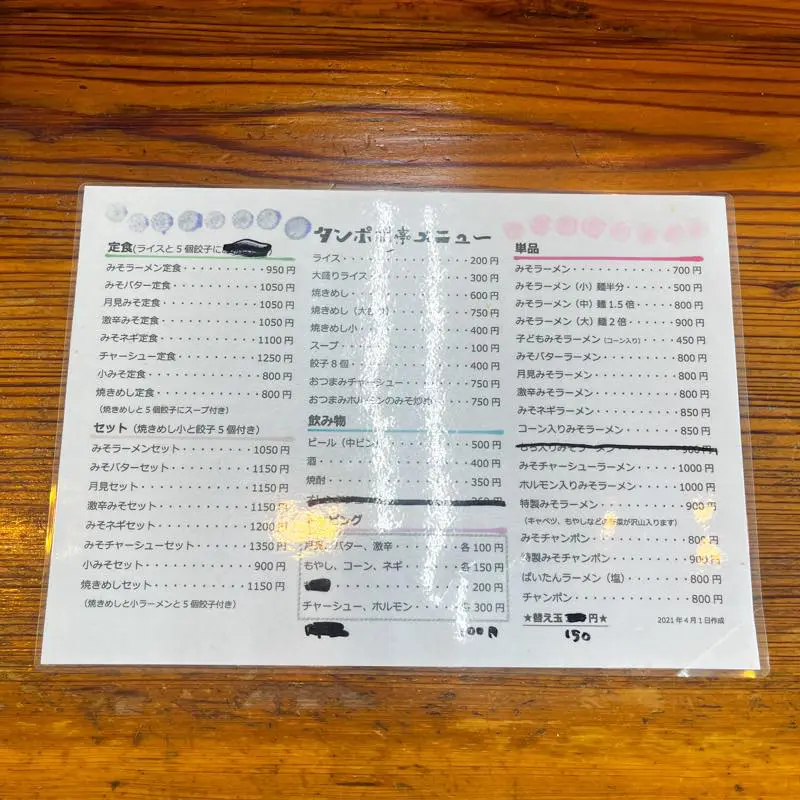 タンポポ亭メニュー
定食(ライスと5個餃子に
みそラーメン定食・・・・・・・・950円
みそバター定食・・・・・・・・1050円
月見みそ定食・・・・・・・・・1050円
激辛みそ定食・・・・・・・・・1050円
みそネギ定食・・・・・・・・・1100円
チャーシュー定食・・・・・・・1250円
小みそ定食・・・・・・・・・・800円
焼きめし定食・・・・・・・・・800円
(焼きめしと5個餃子にスープ付き)
セット(焼きめし小と餃子5個付き)
みそラーメンセット・・・・・・1050円
みそバターセット・・・・・・・1150円
月見セット・・・・・・・・・・1150円
激辛みそセット・・・・・・・・1150円
みそネギセット・・・・・・・・1200円
みそチャーシューセット・・・・1350円
小みそセット・・・・・・・・・900円
焼きめしセット・・・・・・・・1150円
(焼きめしと小ラーメンと5個餃子付き)
ライス・・・・・・・・・・・・200円
大盛りライス・・・・・・・・・300円
焼きめし・・・・・・・・・・・600円
焼きめし(大もり)・・・・・・750円
焼きめし小・・・・・・・・・・400円
スープ・・・・・・・・・・・・100円
餃子8個・・・・・・・・・・・400円
おつまみチャーシュー・・・・・750円
おつまみホルモンのみそ炒め・・750円
飲み物
ビール(中ビン)・・・・・・・500円
酒・・・・・・・・・・・・・・400円
焼酎・・・・・・・・・・・・・350円
ピング
バター、激辛・・・・・各100円
もやし、コーン、ネギ・・・・各150円
200円
チャーシュー、ホルモン・・・各300円
00円
単品
みそラーメン・・・・・・・・・700円
みそラーメン(小)麺半分・・・500円
みそラーメン(中)麺1.5倍・・・800円
みそラーメン(大)麺2倍・・・900円
子どもみそラーメン(コーン入り)・・450円
みそバターラーメン・・・・・・800円
月見みそラーメン・・・・・・・800円
激辛みそラーメン・・・・・・・800円
みそネギラーメン・・・・・・・850円
コーン入りみそラーメン・・・・850円
もち入りみそラーメン・・・・・900円
みそチャーシューラーメン・・・1000円
ホルモン入りみそラーメン・・・1000円
特製みそラーメン・・・・・・・900円
(キャベツ、もやしなどの野菜が沢山入ります)
みそチャンポン・・・・・・・・800円
特製みそチャンポン・・・・・・900円
ぱいたんラーメン(塩)・・・・800円
チャンポン・・・・・・・・・・800円
★替え玉 円★
150
2021年4月1日作成